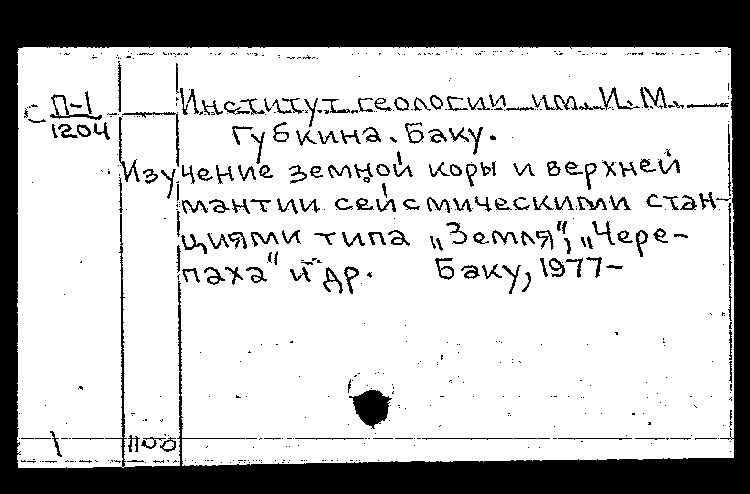 С П-1
1204
Институт геологии им. И.М.
Губкина. Баку.
Изучение земной коры и верхней
мантии сейсмическими стан-
циями типа „Земля", „Чере-
паха" и др. Баку, 1977-
1 1100